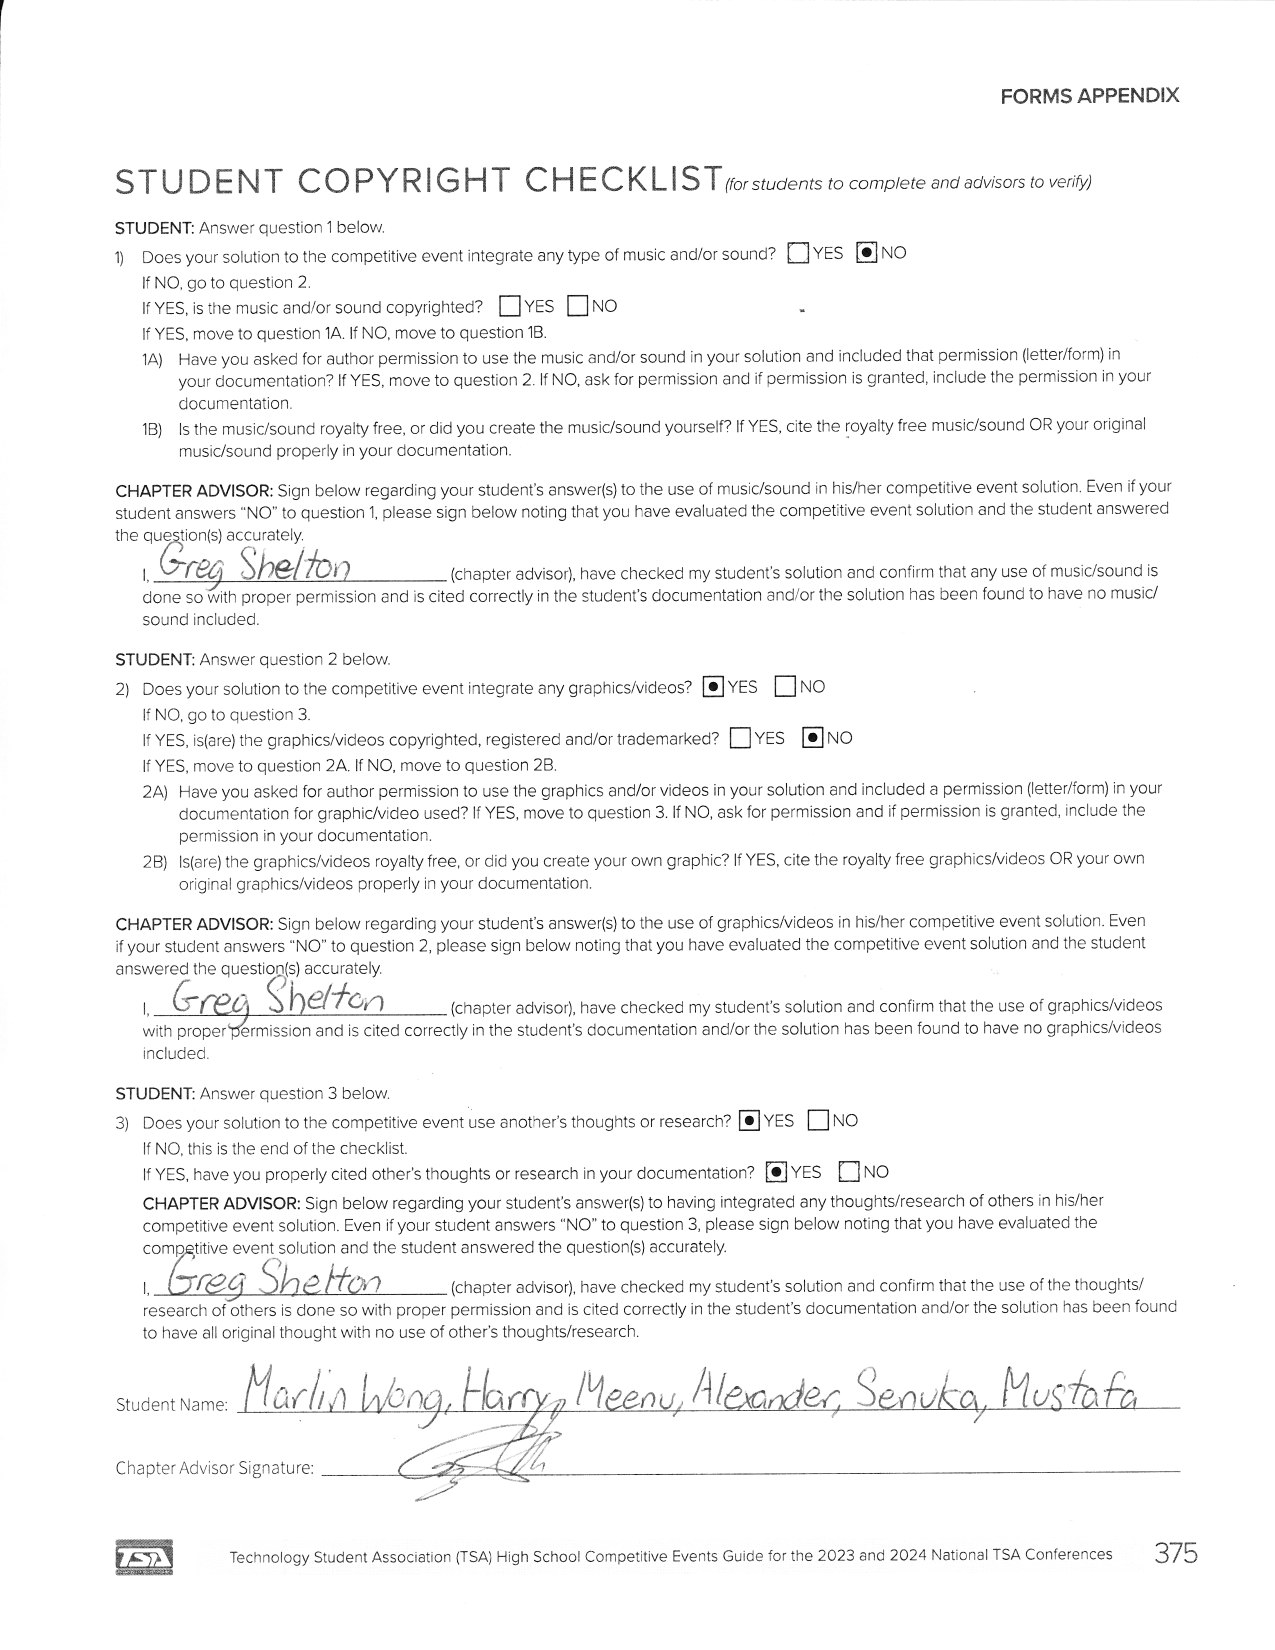 FORMS APPENDIX
STUDENT COPYRIGHT CHECKLIST (for students to complete and advisors to verify)
STUDENT: Answer question 1 below.
1) Does your solution to the competitive event integrate any type of music and/or sound? YES NO
If NO, go to question 2.
If YES, is the music and/or sound copyrighted? YES NO
If YES, move to question 1A. If NO, move to question 1B.
1A) Have you asked for author permission to use the music and/or sound in your solution and included that permission (letter/form) in
your documentation? If YES, move to question 2. If NO, ask for permission and if permission is granted, include the permission in your
documentation.
1B) Is the music/sound royalty free, or did you create the music/sound yourself? If YES, cite the royalty free music/sound OR your original
music/sound properly in your documentation.
CHAPTER ADVISOR: Sign below regarding your student's answer(s) to the use of music/sound in his/her competitive event solution. Even if your
student answers "NO" to question 1, please sign below noting that you have evaluated the competitive event solution and the student answered
the question(s) accurately.
I, Greg Shelton (chapter advisor), have checked my student's solution and confirm that any use of music/sound is
done so with proper permission and is cited correctly in the student's documentation and/or the solution has been found to have no music/
sound included.
STUDENT: Answer question 2 below.
2) Does your solution to the competitive event integrate any graphics/videos? YES NO
If NO, go to question 3.
If YES, is(are) the graphics/videos copyrighted, registered and/or trademarked? YES NO
If YES, move to question 2A. If NO, move to question 2B.
2A) Have you asked for author permission to use the graphics and/or videos in your solution and included a permission (letter/form) in your
documentation for graphic/video used? If YES, move to question 3. If NO, ask for permission and if permission is granted, include the
permission in your documentation.
2B) Is(are) the graphics/videos royalty free, or did you create your own graphic? If YES, cite the royalty free graphics/videos OR your own
original graphics/videos properly in your documentation.
CHAPTER ADVISOR: Sign below regarding your student's answer(s) to the use of graphics/videos in his/her competitive event solution. Even
if your student answers "NO" to question 2, please sign below noting that you have evaluated the competitive event solution and the student
answered the question(s) accurately.
I, Greg Shelton (chapter advisor), have checked my student's solution and confirm that the use of graphics/videos
with proper permission and is cited correctly in the student's documentation and/or the solution has been found to have no graphics/videos
included.
STUDENT: Answer question 3 below.
3) Does your solution to the competitive event use another's thoughts or research? YES NO
If NO, this is the end of the checklist.
If YES, have you properly cited other's thoughts or research in your documentation? YES NO
CHAPTER ADVISOR: Sign below regarding your student's answer(s) to having integrated any thoughts/research of others in his/her
competitive event solution. Even if your student answers "NO" to question 3, please sign below noting that you have evaluated the
competitive event solution and the student answered the question(s) accurately.
I, Greg Shelton (chapter advisor), have checked my student's solution and confirm that the use of the thoughts/
research of others is done so with proper permission and is cited correctly in the student's documentation and/or the solution has been found
to have all original thought with no use of other's thoughts/research.
Student Name: Marlin Wong, Harry, Meenu, Alexander, Senuka, Mustafa
Chapter Advisor Signature:
TSA Technology Student Association (TSA) High School Competitive Events Guide for the 2023 and 2024 National TSA Conferences 375